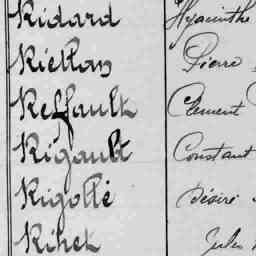 Ridard Hyacinthe
Riellan Pierre
Reffault Clement
Rigault Constant
Rigollé Désiré
Rihet Jules